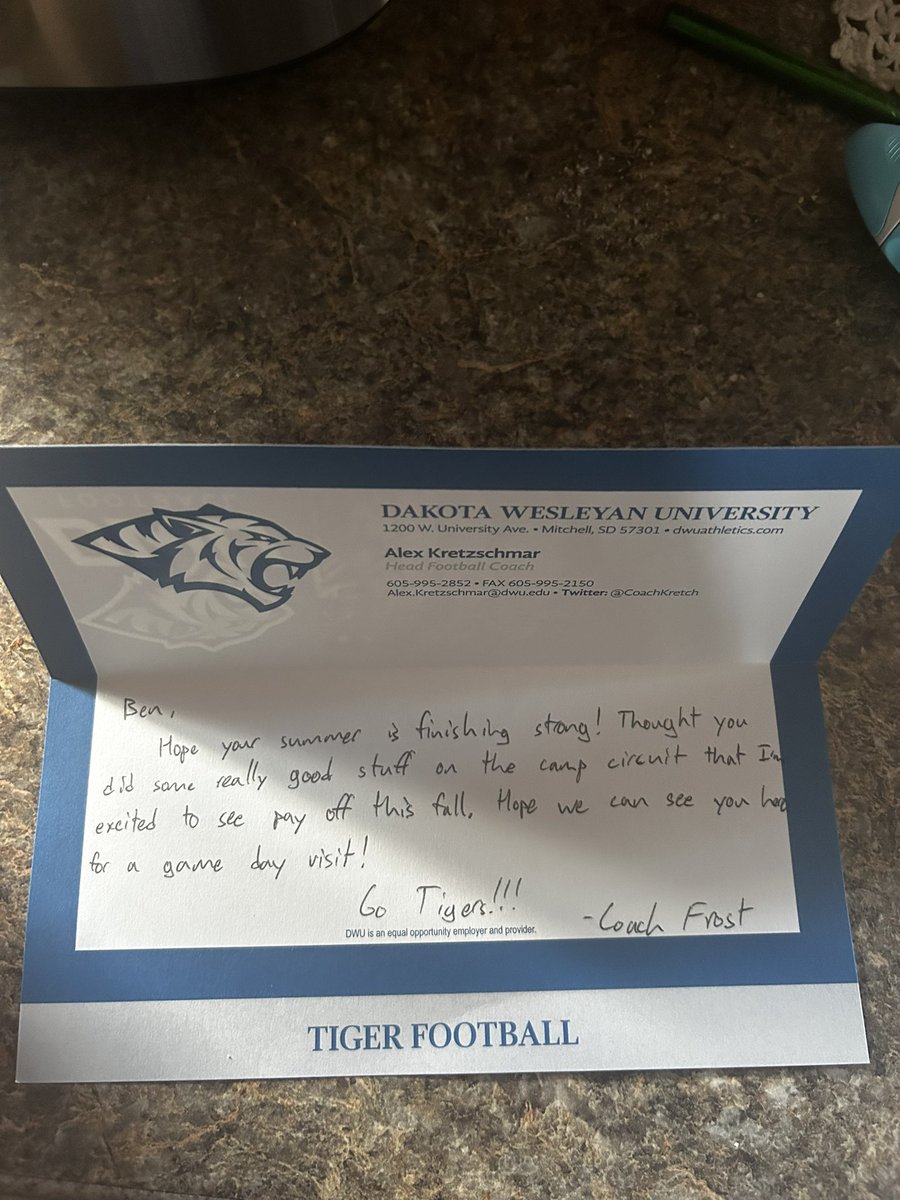 DAKOTA WESLEYAN UNIVERSITY
1200 W. University Ave. • Mitchell, SD 57301 • dwuathletics.com
Alex Kretzschmar
Head Football Coach
605-995-2852 • FAX 605-995-2150
Alex.Kretzschmar@dwu.edu • Twitter: @CoachKretch
Ben,
Hope your summer is finishing strong! Thought you
did some really good stuff on the camp circuit that I'm
excited to see pay off this fall. Hope we can see you
for a game day visit!
Go Tigers!!!
-Coach Frost
DWU is an equal opportunity employer and provider.
TIGER FOOTBALL